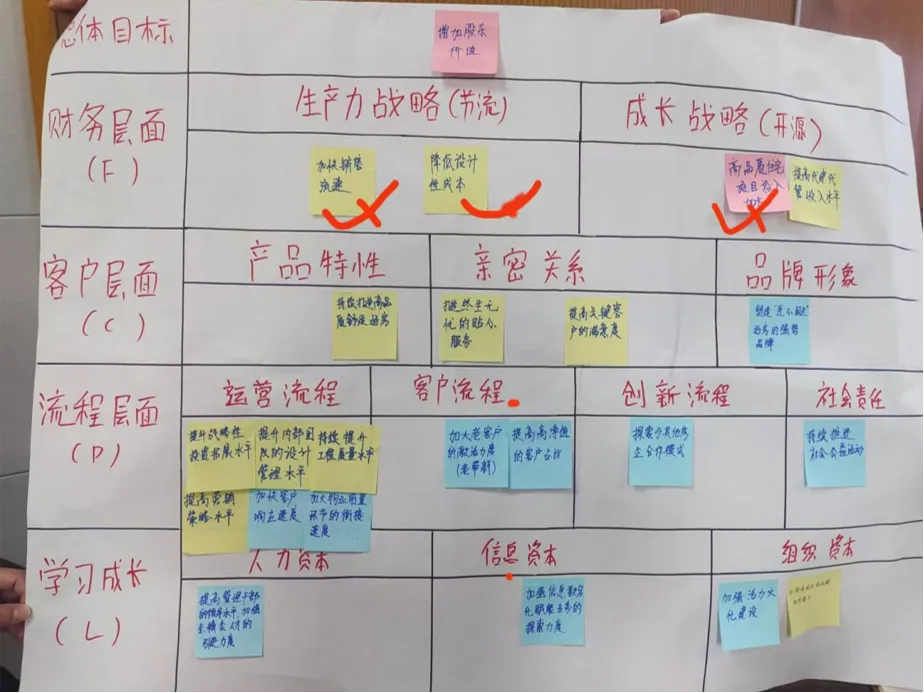 总体目标
增加股东
价值
财务层面
(F)
生产力战略(节流)
成长战略(开源)
加快销售
流速
降低设计
性成本
高品质住宅
项目收入
提高代建代
管收入水平
客户层面
(C)
产品特性
亲密关系
品牌形象
持续打造高品
好房
无
优的贴心
服务
提高关键客
户的满意度
好房的强势
品牌
流程层面
(P)
运营流程
客户流程
创新流程
社会责任
提升战略性
投资拓展水平
提升内部团
队的设计
管理水平
持续提升
工程质量水平
提高营销
策略水平
加快客户
响应速度
加大物业前置
环节的衔接
速度
加大老客户
的激活力度
(老带新)
提高高净值
的客户占比
探索与其他房
企合作模式
持续推进
社会公益活动
学习成长
(L)
人力资本
信息资本
组织资本
提高管理干部
的领导水平,加强
人才的
引进力度
加强信息、数字
化赋能业务的
探索力度
加强活力文
化建设